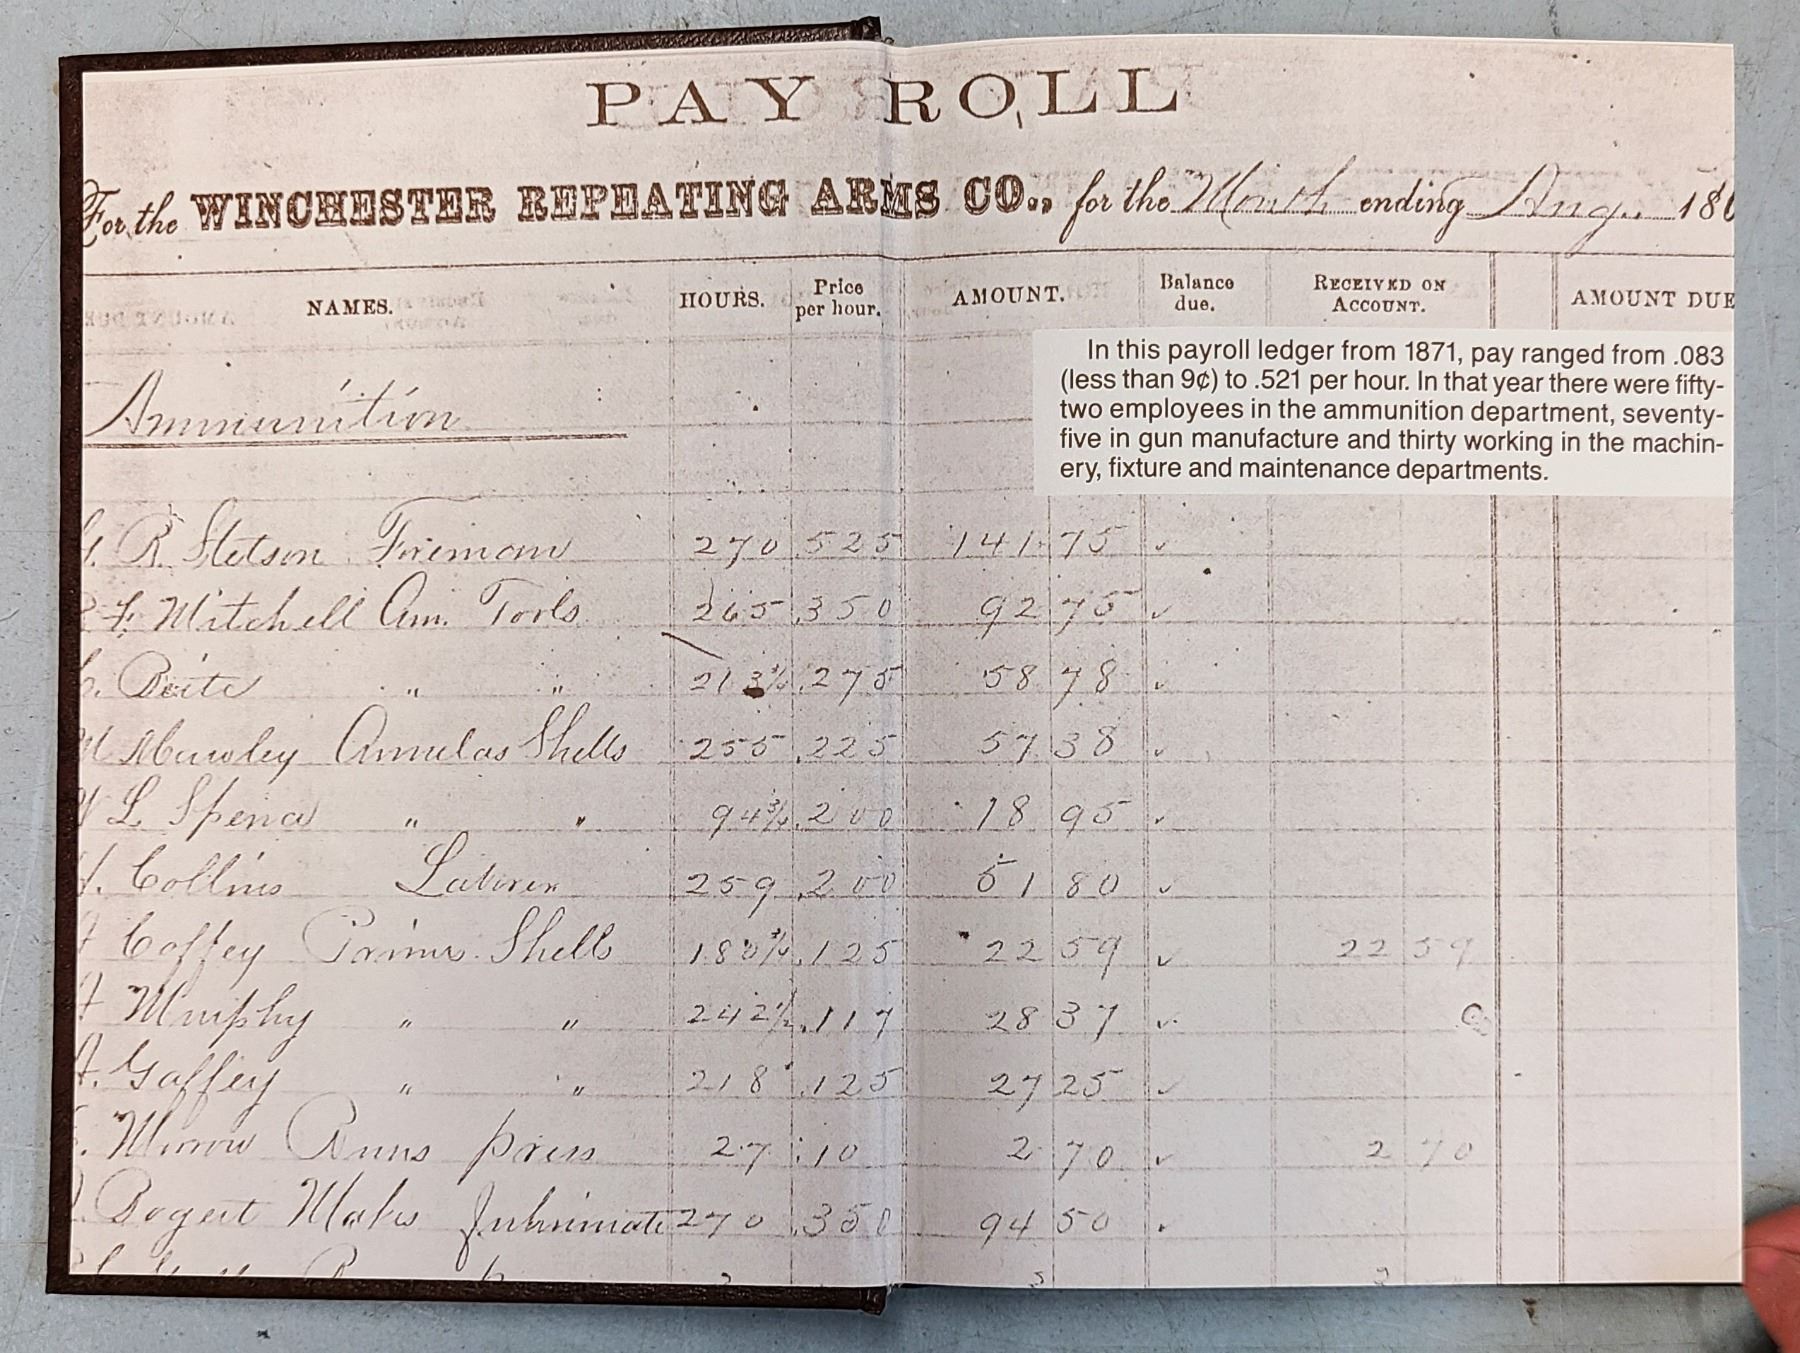 PAY ROLL
For the WINCHESTER REPEATING ARMS CO., for the Month ending Aug. 186
NAMES. HOURS. Price per hour. AMOUNT. Balance due. RECEIVED ON ACCOUNT. AMOUNT DUE
In this payroll ledger from 1871, pay ranged from .083
(less than 9¢) to .521 per hour. In that year there were fifty-
two employees in the ammunition department, seventy-
five in gun manufacture and thirty working in the machin-
ery, fixture and maintenance departments.
Ammunition
R. Stetson Foreman 270 .525 141.75 ✓
F. Mitchell Am. Tools 265 .350 92 75 ✓
" " 213¾ .275 58 78 ✓
Annulas Shells 255 .225 57 38 ✓
L Spencer " " 94¾ .200 18 95 ✓
Collins Laborer 259 .200 51 80 ✓
Coffey Primes Shells 180¾ .125 22 59 ✓ 22 59
Murphy " " 242½ .117 28 37 ✓
Gaffey " " 218 .125 27 25 ✓
Morrow Runs press 27 .10 2 70 ✓ 2 70
Bogert Makes fulminate 270 .350 94 50